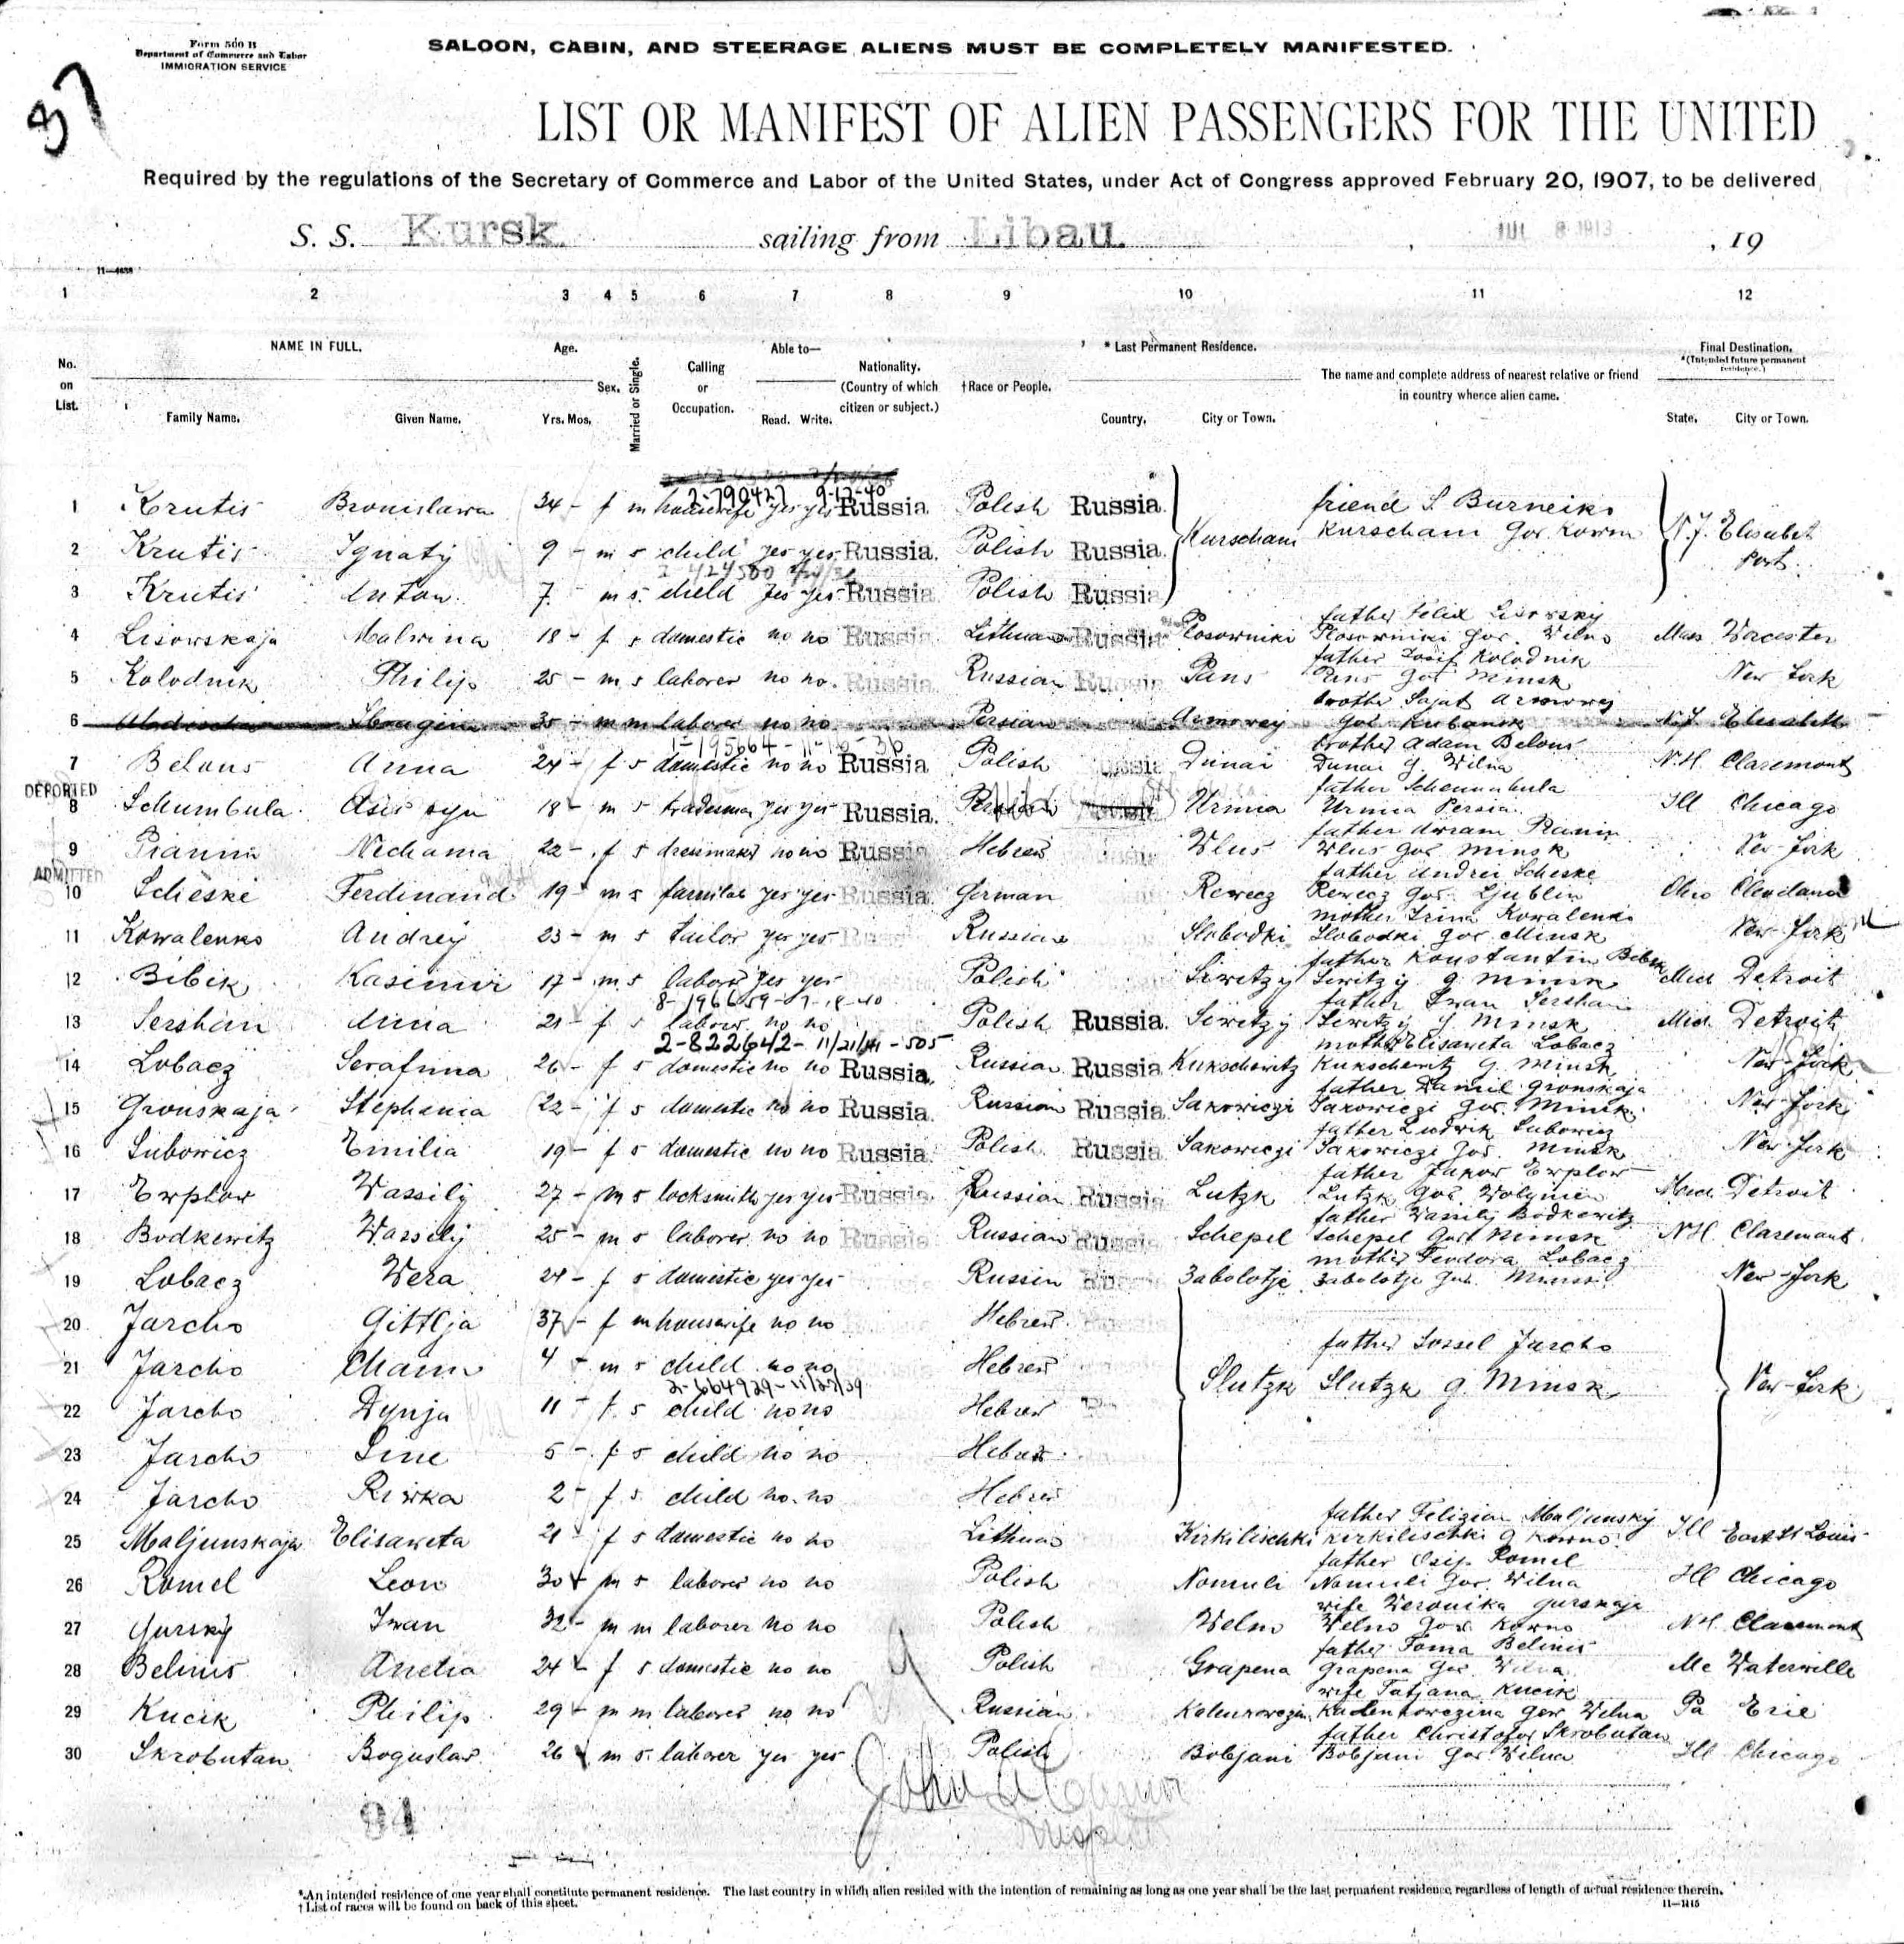 Form 500 B
Department of Commerce and Labor
IMMIGRATION SERVICE
37
SALOON, CABIN, AND STEERAGE ALIENS MUST BE COMPLETELY MANIFESTED.
LIST OR MANIFEST OF ALIEN PASSENGERS FOR THE UNITED
Required by the regulations of the Secretary of Commerce and Labor of the United States, under Act of Congress approved February 20, 1907, to be delivered
S. S. Kursk. sailing from Libau. , JUL 8 1913 , 19
1 2 3 4 5 6 7 8 9 10 11 12
No. on List. NAME IN FULL. Family Name. Given Name. Age. Yrs. Mos. Sex. Married or Single. Calling or Occupation. Able to— Read. Write. Nationality. (Country of which citizen or subject.) †Race or People. * Last Permanent Residence. Country. City or Town. The name and complete address of nearest relative or friend in country whence alien came. Final Destination. *(Intended future permanent residence.) State. City or Town.
2-790427 9-17-40
1 Krutis Bronislawa 34 - f m housewife yes yes Russia Polish Russia. Kurschani friend S Burneiko Kurschani Gov. Kowno N.J. Elisabet Port.
2 Krutis Ignatij 9 - m s child yes yes Russia. Polish Russia.
2 424500
3 Krutis Anton 7. m s. child yes yes Russia Polish Russia
4 Lisowskaja Malwina 18 - f s domestic no no Russia Lithuan Russia Plosowniki father Felix Lisowsky Plosowniki Gov. Wilno Mass Worcester
5 Kolodnik Philip 25 - m s laborer no no. Russia Russian Russia Pins father Josif Kolodnik Pins Gov Minsk New York
6 35 - m m laborer no no Persian Armowey brother Sajat Armowey Gov Kubansk N.J. Elisabeth
1-195664-11-16-36
7 Belous Anna 24 - f s domestic no no Russia Polish Dunai brother Adam Belous Dunai g. Wilna N.H. Claremont
DEPORTED
8 Schumbula Asis 18 - m s tradesman yes yes Russia. Persian Urmia father Schumbula Urmia Persia Ill Chicago
9 Pianin Nechama 22 - f s dressmaker no no Russia Hebrew Wlus father Avram Pianin Wlus Gov Minsk New-York
ADMITTED
10 Scheske Ferdinand 19 - m s yes yes Russia German Rewecz father Andrei Scheske Rewecz Gov. Ljublin Ohio Cleveland
11 Kowalenko Andrej 23 - m s tailor yes yes Russian Slobodki mother Irina Kowalenko Slobodki Gov Minsk New-York
12 Bibik Kasimir 17 - m s labour yes yes Polish Siwitzy father Konstantin Bibik Siwitzy g Minsk Mich Detroit
13 Sershan Anna 21 - f s labour no no Polish Russia. Siwitzy father Iwan Sershan Siwitzy g Minsk Mich. Detroit
2-822642- 11/21/41 - 505
14 Lobacz Serafima 26 - f s domestic no no Russia. Russian Russia Kukschewitz mother Elisaweta Lobacz Kukschewitz g. Minsk New-York
15 Gronskaja Stephania 22 - f s domestic no no Russia. Russian Russia. Sakowiczi father Daniil Gronskaja Sakowiczi Gov. Minsk. New-York
16 Lubowicz Emilia 19 - f s domestic no no Russia. Polish. Russia Sakowiczi father Ludwik Lubowicz Sakowiczi Gov. Minsk New-York
17 Ewplow Wassilij 27 - m s locksmith yes yes Russia. Russian Russia Lutzk father Jakow Ewplow Lutzk Gov. Wolynien Mich. Detroit
18 Bodkewitz Wassilij 25 - m s laborer no no Russia Russian Russia Schepel father Wasilij Bodkewitz Schepel Gov Minsk N.H. Claremont.
19 Lobacz Wera 24 - f s domestic yes yes Russin Zabolotje mother Feodora Lobacz Zabolotje Gov. Minsk New-York
20 Jarcho Gittlja 37 - f m housewife no no Hebrew. Slutzk father Jossel Jarcho Slutzk g. Minsk New-York
21 Jarcho Chaim 4 - m s child no no Hebrew
2-664929-11/27/39
22 Jarcho Dynja 11 - f. s child no no Hebrew
23 Jarcho Sine 5 - f s child no no Hebrew
24 Jarcho Riwka 2 - f s. child no. no Hebrew
25 Maljunskaja Elisaweta 21 f s domestic no no Lithuan Kirkilischki father Felizian Maljunsky Kirkilischki g Kowno. Ill East St Louis
26 Romel Leon 30 m s laborer no no Polish Nomuli father Osip Romel Nomuli Gov. Wilna Ill Chicago
27 Gursky Iwan 32 - m m laborer no no Polish Welno wife Weronika Gurskaja Welno Gov Kowno N.H. Claremont
28 Belinis Anelia 24 f s domestic no no Polish Grapena father Foma Belinis Grapena Gov. Wilna Me Waterville
29 Kucik Philip 29 m m laborer no no Russian wife Tatjana Kucik Gov Wilna Pa Erie
30 Skrobutan Boguslav 26 m s. laborer yes yes Polish Bobjani father Christofor Skrobutan Bobjani Gov Wilna Ill Chicago
94
*An intended residence of one year shall constitute permanent residence. The last country in which alien resided with the intention of remaining as long as one year shall be the last permanent residence regardless of length of actual residence therein.
† List of races will be found on back of this sheet.
11—1115